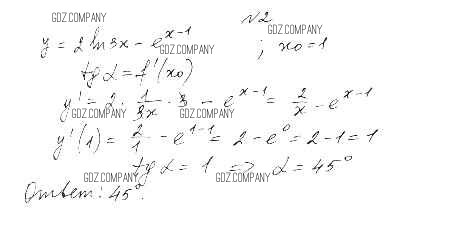 GDZ.COMPANY
№2
GDZ.COMPANY
y = 2 ln 3x - e^{x-1} ; x₀ = 1
GDZ.COMPANY
tg α = f'(x₀)
y' = 2 · 1/3x · 3 - e^{x-1} = 2/x - e^{x-1}
GDZ.COMPANY GDZ.COMPANY GDZ.COMPANY
y'(1) = 2/1 - e^{1-1} = 2 - e⁰ = 2 - 1 = 1
tg α = 1 => α = 45°
GDZ.COMPANY GDZ.COMPANY
Ответ: 45°.